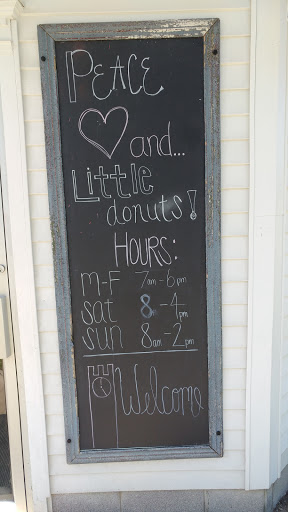 PEACE
and...
Little
donuts!
HOURS:
M-F 7am-6pm
Sat 8-4pm
Sun 8am-2pm
Welcome